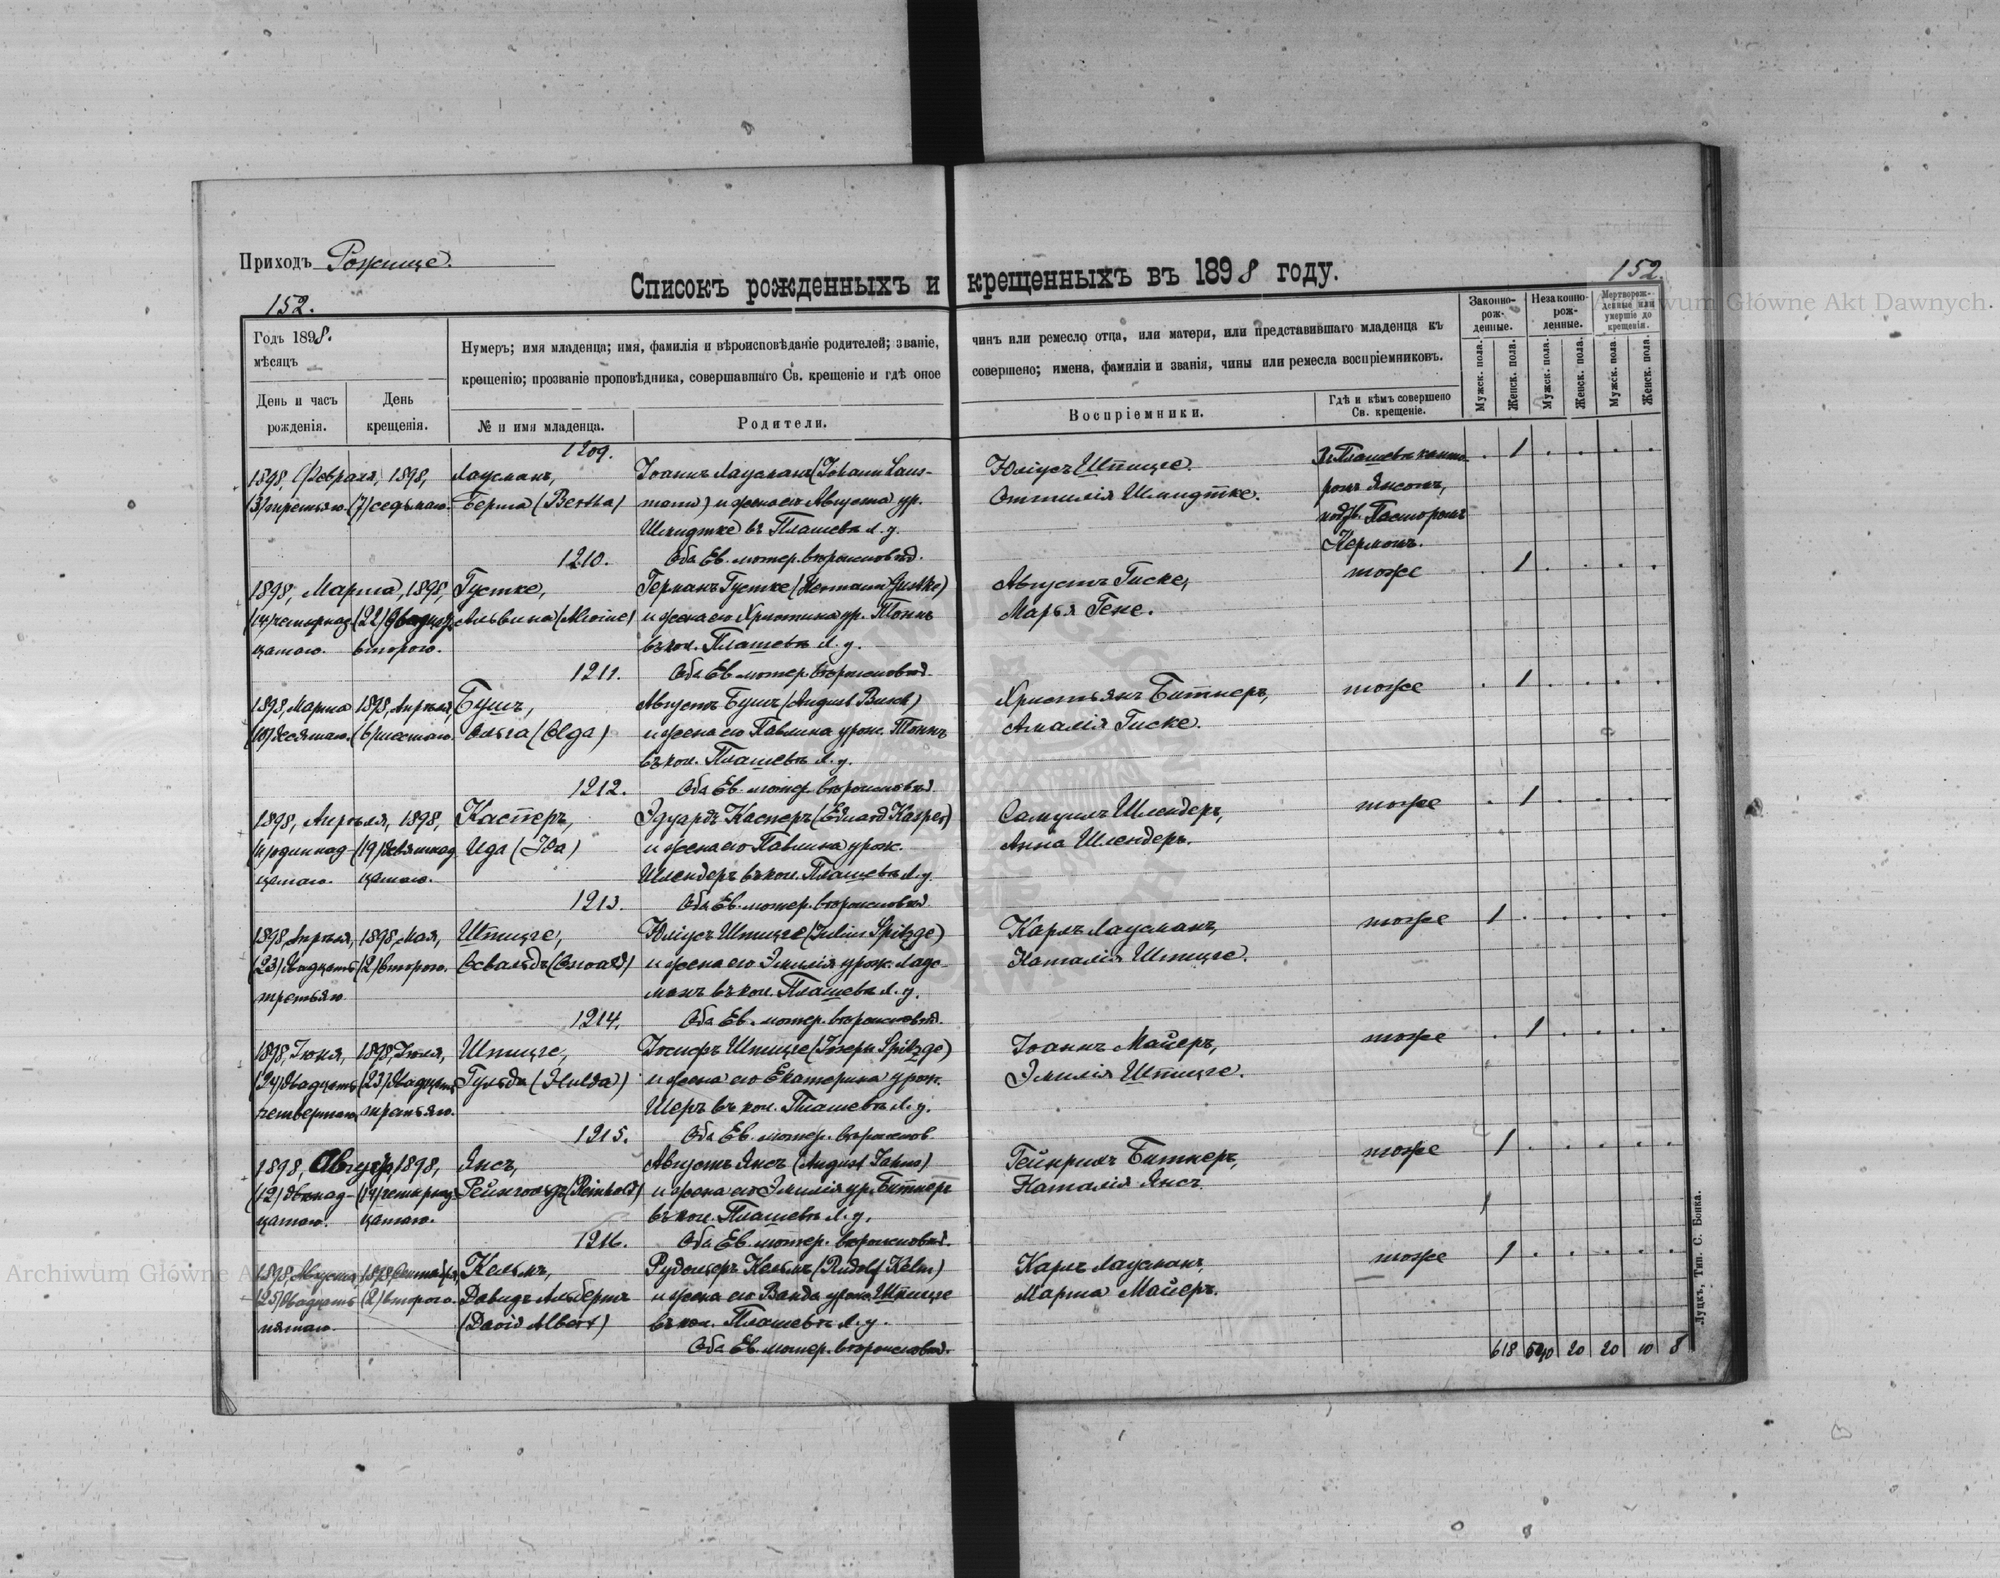 Приходъ Рожище.
Списокъ рожденныхъ и крещенныхъ въ 1898 году.
152.
152.
Годъ 1898.
мѣсяцъ
Нумеръ; имя младенца; имя, фамилія и вѣроисповѣданіе родителей; званіе,
крещенію; прозваніе проповѣдника, совершавшаго Св. крещеніе и гдѣ оное
чинъ или ремесло отца, или матери, или представившаго младенца къ
совершено; имена, фамиліи и званія, чины или ремесла воспріемниковъ.
Законно-
рож-
денные.
Незаконно-
рож-
денные.
Мертворож-
денные или
умершіе до
крещенія.
День и часъ
рожденія.
День
крещенія.
№ и имя младенца.
Родители.
Воспріемники.
Гдѣ и кѣмъ совершено
Св. крещеніе.
Мужск. пола.
Женск. пола.
Мужск. пола.
Женск. пола.
Мужск. пола.
Женск. пола.
1209.
1898, Февраля, 1898,
(3) третьяго. (7) седьмаго.
Лаусманъ,
Берта (Bertha)
Іоаннъ Лаусманъ (Johann Laus-
mann) и жена его Августа ур.
Шмидтке въ Плашевѣ Л. у.
Оба Ев. лютер. вѣроисповѣд.
Юліусъ Шпицге.
Оттилія Шмидтке.
Въ Плашевѣ канто
ромъ Янсомъ,
подтв. Пасторомъ
Кермомъ.
1
1210.
1898, Марта, 1898,
(14) четырнад (22) двадцат
цатаго. второго.
Густке,
Альвина (Alvine)
Германъ Густке (Hermann Gustke)
и жена его Христина ур. Тоннъ
въ кол. Плашевѣ Л. у.
Оба Ев. лютер. вѣроисповѣд.
Августъ Гиске,
Марья Гене.
тоже
1
1211.
1898, Марта 1898, Апрѣля,
(10) десятаго. (6) шестаго.
Бушъ,
Ольга (Olga)
Августъ Бушъ (August Busch)
и жена его Павлина урож. Тоннъ
въ кол. Плашевѣ Л. у.
Оба Ев. лютер. вѣроисповѣд.
Христьянъ Битнеръ,
Амалія Гиске.
тоже
1
1212.
1898, Апрѣля, 1898,
(11) одиннад (19) девятнад
цатаго. цатаго.
Касперъ,
Ида (Ida)
Эдуардъ Касперъ (Eduard Kasper)
и жена его Павлина урож.
Шлендеръ въ кол. Плашевѣ Л. у.
Оба Ев. лютер. вѣроисповѣд.
Самуилъ Шлендеръ,
Анна Шлендеръ.
тоже
1
1213.
1898, Апрѣля, 1898, Мая,
(23) двадцать (2) второго.
третьяго
Шпицге,
Освальдъ (Oswald)
Юліусъ Шпицге (Julius Spitzge)
и жена его Эмилія урож. Лаус-
манъ въ кол. Плашевѣ Л. у.
Оба Ев. лютер. вѣроисповѣд.
Карлъ Лаусманъ,
Наталія Шпицге.
тоже
1
1214.
1898, Іюня, 1898, Іюля,
(24) двадцать (23) двадцать
четвертаго. третьяго.
Шпицге,
Гульда (Hulda)
Іосифъ Шпицге (Joseph Spitzge)
и жена его Екатерина урож.
Шеръ въ кол. Плашевѣ Л. у.
Оба Ев. лютер. вѣроиспов.
Іоаннъ Майеръ,
Эмилія Шпицге.
тоже
1
1215.
1898, Августа, 1898,
(12) двѣнад (14) четырнад
цатаго. цатаго.
Янсъ,
Рейнгольдъ (Reinhold)
Августъ Янсъ (August Jahns)
и жена его Эмилія ур. Битнеръ
въ кол. Плашевѣ Л. у.
Оба Ев. лютер. вѣроисповѣд.
Гейнрихъ Битнеръ,
Наталія Янсъ.
тоже
1
1216.
1898, Августа, 1898, Сентября,
(25) двадцать (2) второго.
пятаго.
Кельмъ,
Давидъ Альбертъ
(David Albert)
Рудольфъ Кельмъ (Rudolf Kelm)
и жена его Ванда урож. Шпицге
въ кол. Плашевѣ Л. у.
Оба Ев. лютер. вѣроисповѣд.
Карлъ Лаусманъ,
Марта Майеръ.
тоже
1
618 20 20 10 8
Луцкъ, Тип. С. Бонка.
Archiwum Główne Akt Dawnych.
Archiwum Główne